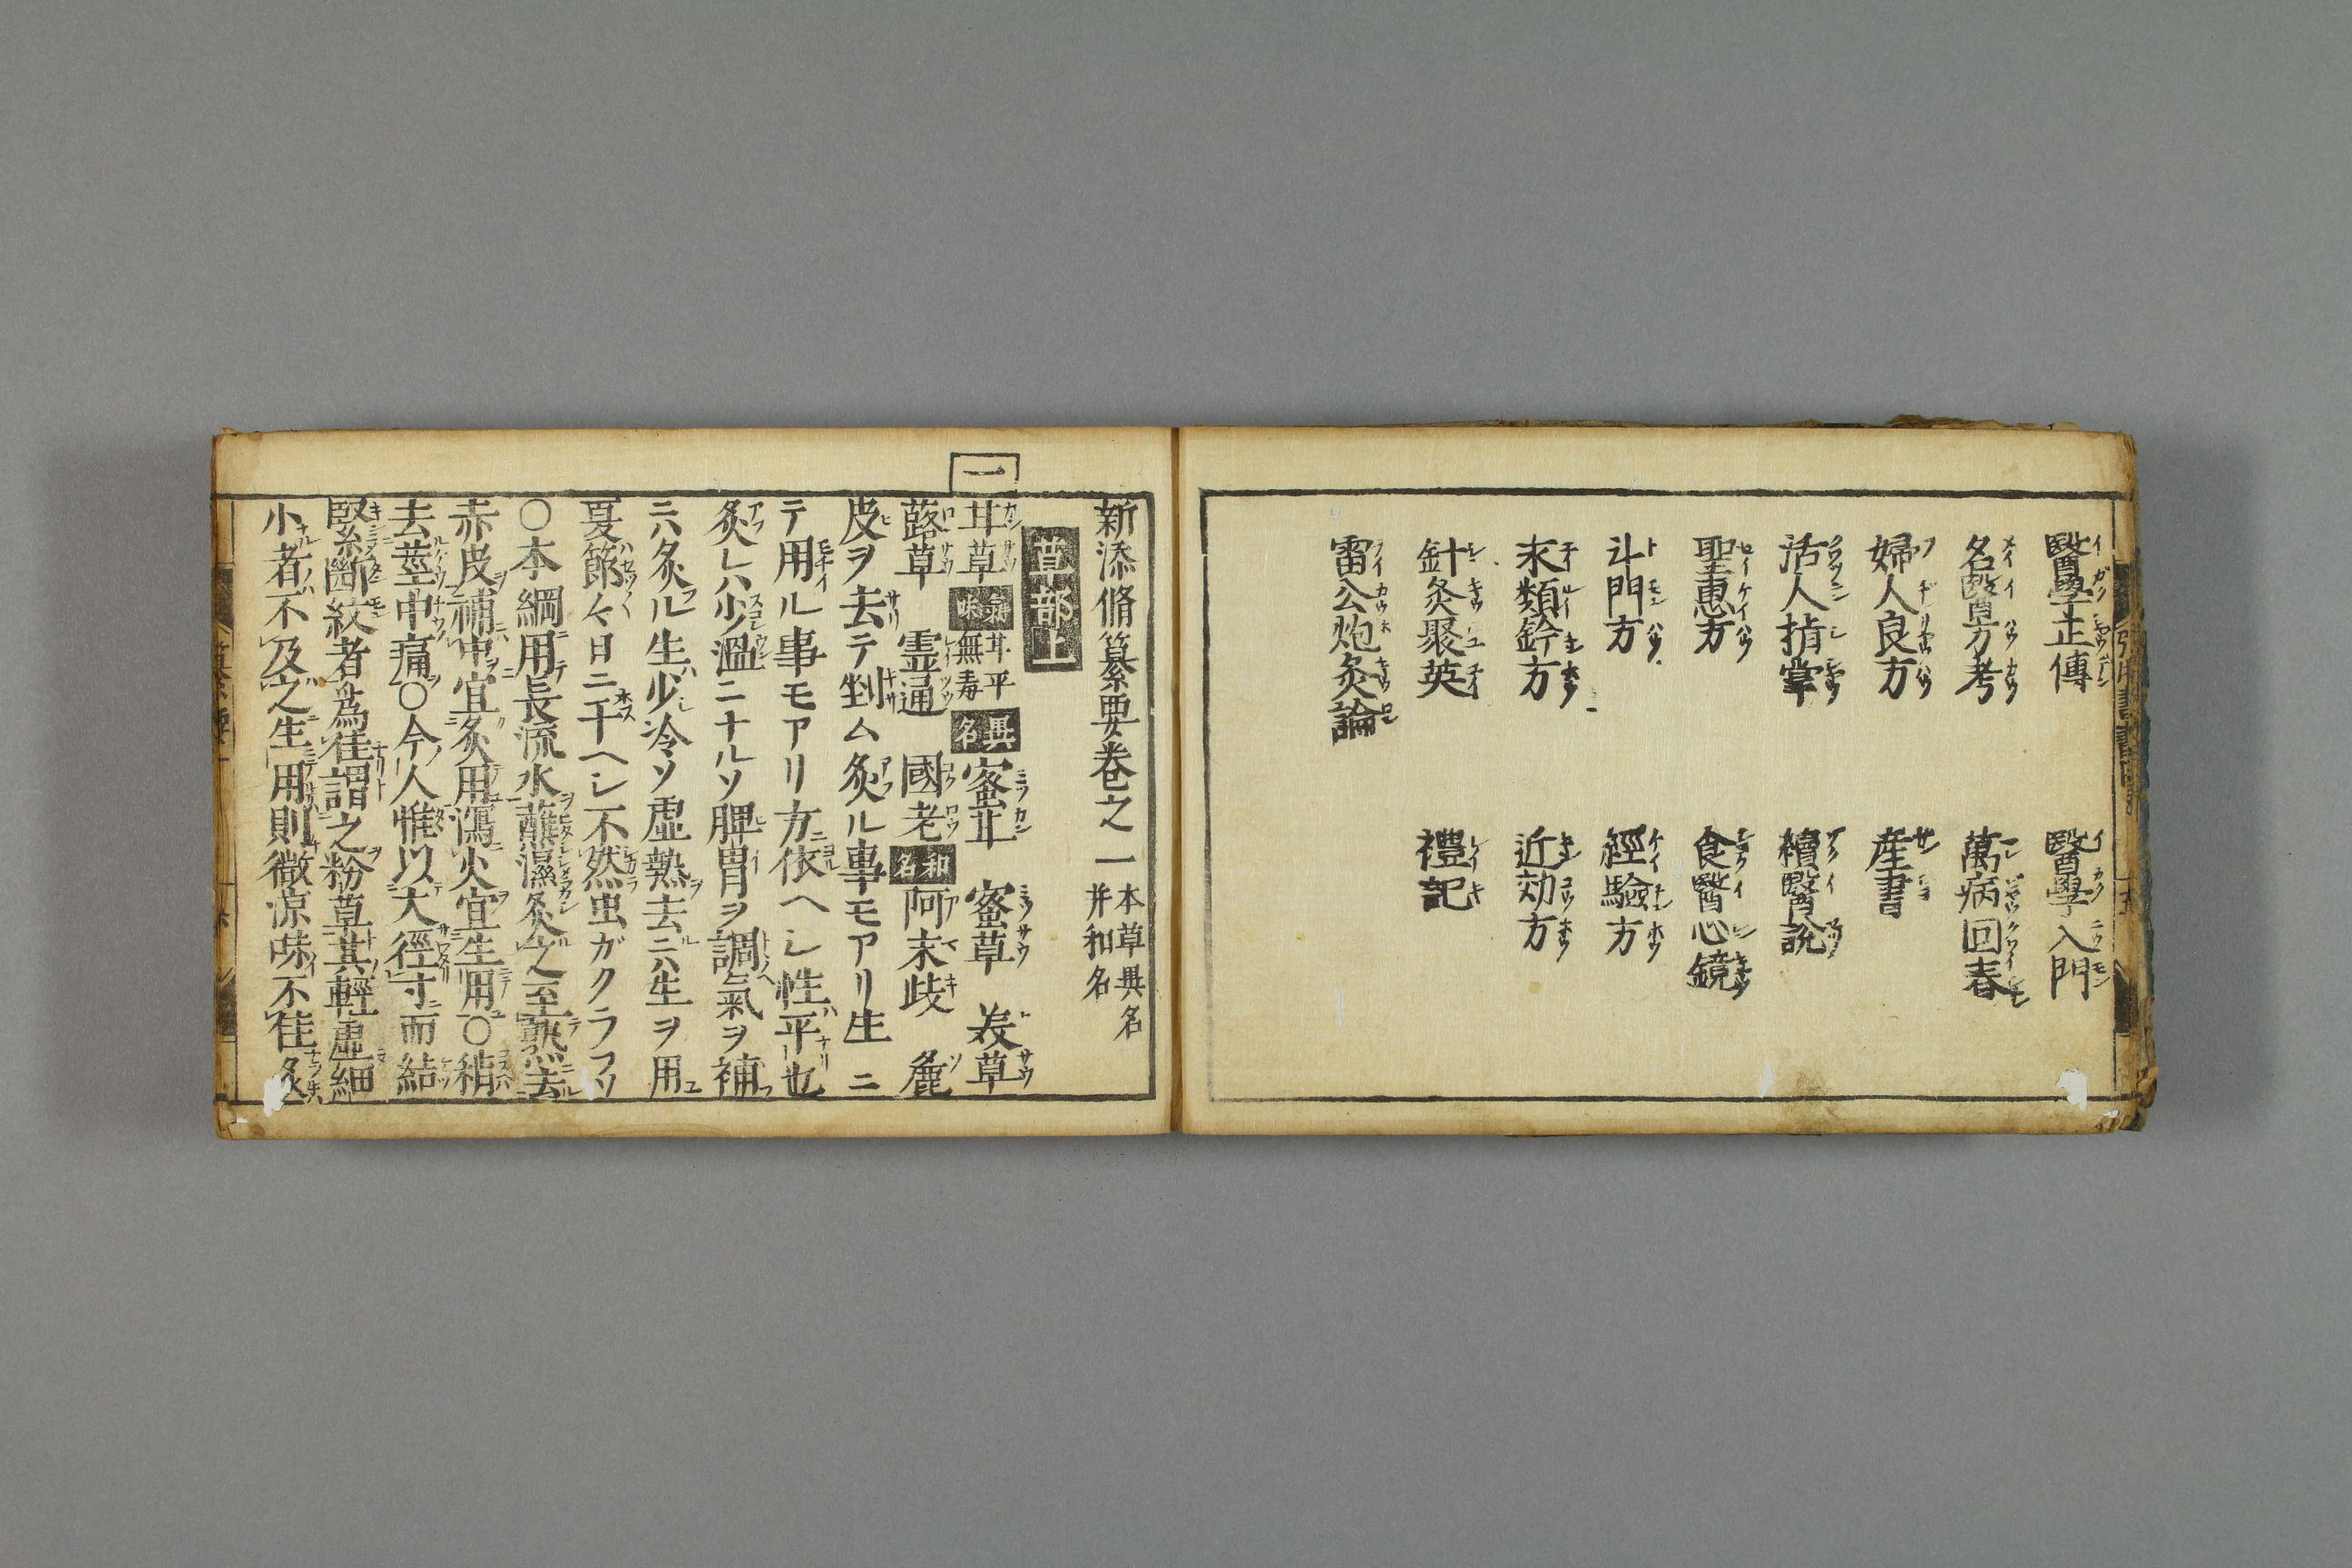 醫學正傳　醫學入門
名醫方考　萬病回春
婦人良方　産書
活人指掌　續醫說
聖惠方　食醫心鏡
斗門方　經驗方
朱類鈐方　近効方
針灸聚英　禮記
雷公炮灸論
新添脩纂要卷之一 本草異名 并和名
草部上
一
甘草 氣味 甘平 無毒 異名 蜜甘　蜜草　美草
蕗草　霊通　國老 和名 阿末岐　麁
皮ヲ去テ剉ム炙ル事モアリ生ニ
テ用ル事モアリ方依ヘシ性平也
炙レハ少溫ニナルソ脾胃ヲ調氣ヲ補
ニハ炙ル生少冷ソ虛熱去ニハ生ヲ用
夏節々日ニ干ヘシ不然虫ガクラフソ
〇本綱用長流水蘸濕炙之至熟去
赤皮補中宜炙用瀉火宜生用〇稍
去莖中痛〇今人惟以大徑寸而結
緊斷紋者爲佳謂之粉草其輕虛細
小者不及之生用則微凉味不佳炙